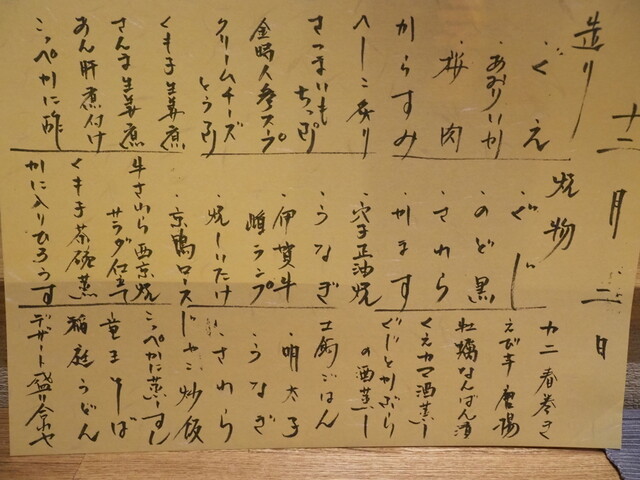 十二月二日
造り
・くえ
・あおりいか
・桜肉
からすみ
へしこ炙り
さつまいも
ちっぷ
金時人参スープ
クリームチーズ
とうふ
くも子生姜煮
さんま生姜煮
あん肝煮付け
こっぺかに酢
焼物
・ぐじ
・のど黒
・さわら
・かます
・穴子正油焼
・うなぎ
・伊賀牛
ランプ
焼しいたけ
・京鴨ロース
牛さがり西京焼
サラダ仕立
くも子茶碗蒸
かに入りひろうす
カニ春巻き
えび芋唐揚
牡蠣なんばん漬
くえカマ酒蒸し
ぐじとかぶら
の酒蒸し
土鍋ごはん
・明太子
・うなぎ
・さわら
じゃこ炒飯
こっぺかに蒸しずし
竜王そば
稲庭うどん
デザート盛り合わせ